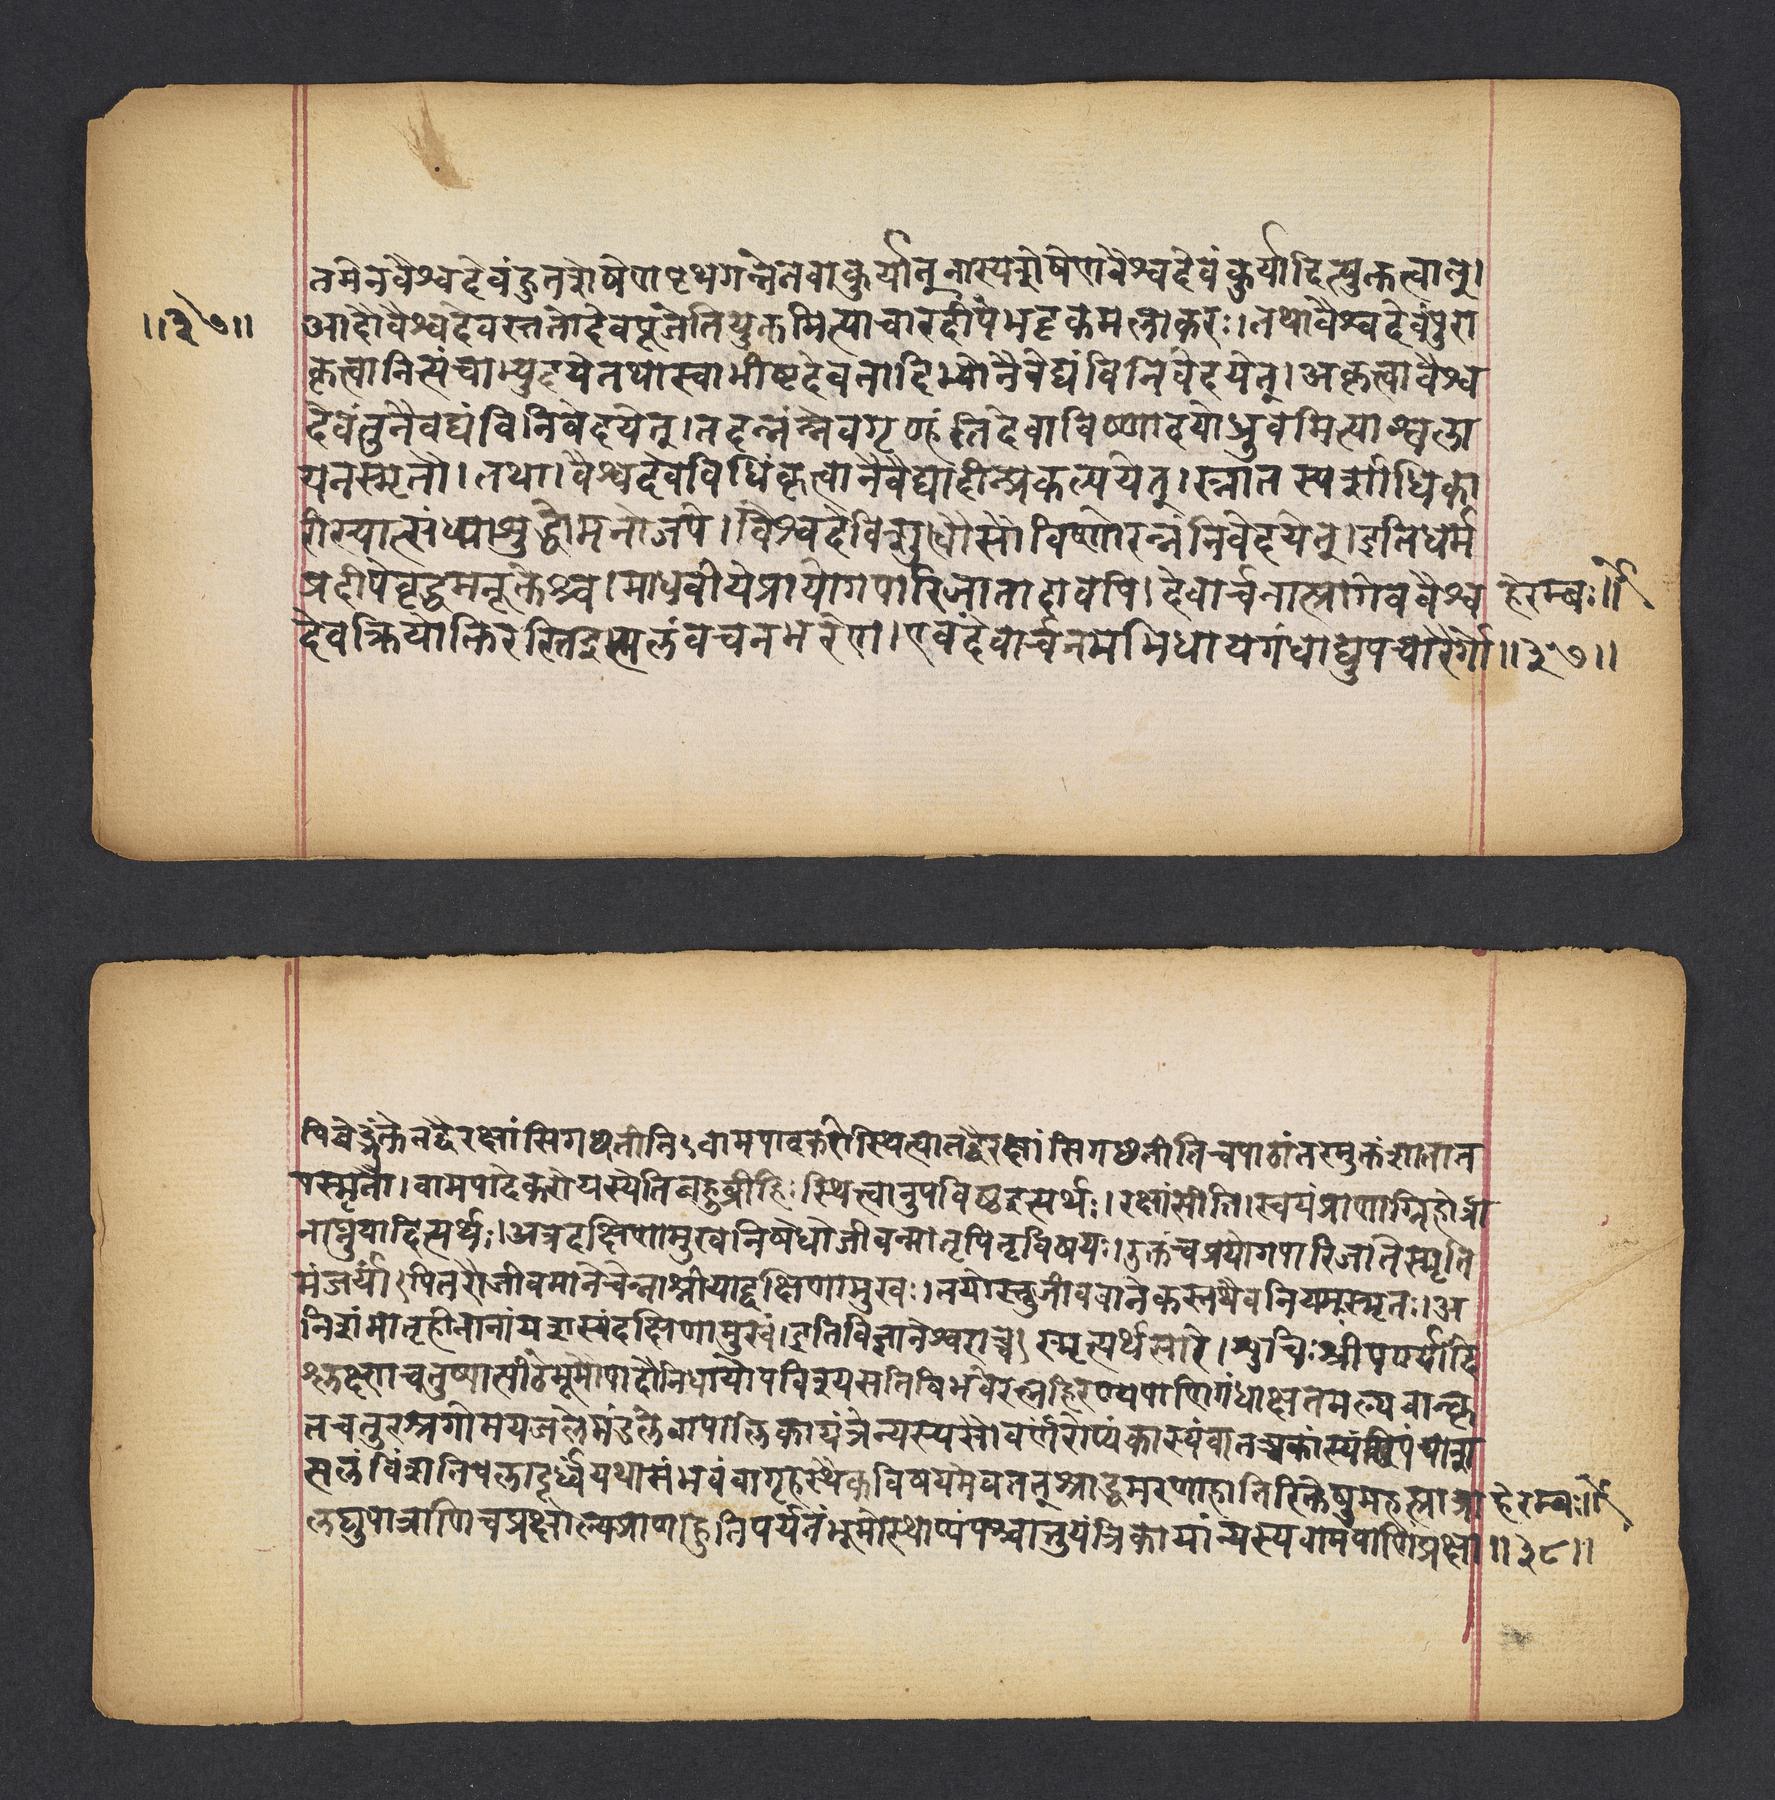 तमेनवैश्वदेवंहुतशेषेणपृथगन्नेनवाकुर्यात्नास्यशेषेणवैश्वदेवंकुर्यादित्युक्तत्वात्।
॥३७॥ आदौवैश्वदेवस्ततोदेवपूजेतियुक्तमित्याचारदीपेभट्टकमलाकरः।तथावैश्वदेवंपुरा
कृत्वानित्संचाभ्युदयेतथास्वाभीष्टदेवतादिभ्योनैवेद्यंविनिवेदयेत्।अकृत्वावैश्व
देवंतुनैवेद्यंविनिवेदयेत्।तदन्नंन्नैवगृण्हंतिदेवाविष्णादयोध्रुवमित्याश्वला
यनस्मृतौ।तथा।वैश्वदेवविधिंकृत्वानैवैद्यादीन्प्रकल्पयेत्।स्नातस्पर्शाधिका
रीस्यात्संध्याशुद्धोमनोजपे।वैश्वदेविशुधोसौविष्णोरन्नंनिवेदयेत्।इतिधर्म
प्रदीपेवृद्धमनूक्तेश्च।माधवीयेप्रायोगपारिजातादावपि।देवार्चनात्प्रागेववैश्व हेरम्बः॥
देवक्रियोक्तिरस्तिइत्यलंवचनभरेण।एवंदेवार्चनमभिधायगंधाद्युपचारैर्गो॥३७॥
पिबेद्भुंक्तेतद्वैरक्षांसिगछतीति१वामपादकरोस्थित्वातद्वैरक्षांसिगछतीतिचपाठांतरमुक्तंशातात
पस्मृतौ।वामपादेकरोयस्येतिबहुव्रीहिः।स्थित्वानुपविष्टइत्यर्थः।रक्षांसीति।स्वयंप्राणाग्निहोत्रा
नाप्नुयादित्यर्थः।अत्रदक्षिणामुखनिषेधोजीवन्मातृपितृविषयः।उक्तंचप्रयोगपारिजातेस्मृति
मंजर्यां।पितरौजीवमानेचेन्नाश्नीयाद्दक्षिणामुखः।तयोस्तुजीववानेकस्तथैवनियमःस्मृतः।अ
निशंमातृहीनानांयशस्यंदक्षिणामुखं।इतिविज्ञानेश्वराच्चे।स्मृत्यर्थसारे।शुचिःश्रीपर्ण्यादि
श्लक्ष्णचतुष्पात्पीठेभूमौपादौनिधायोपविश्यसतिविभवेरत्नहिरण्यपाणिगंधाक्षतमल्यवान्कृ
तचतुरश्रगोमयजलेमंडलेवापालिकायंत्रेन्यस्यसौवर्णरौप्यंकांस्यंवातच्चकांस्यं
सलंविंशतिपलादूर्ध्वंयथासंभवंवागृहस्थैकविषयमेवतत्श्राद्धमरणादातिरिक्तेषुमहत्पात्रा हेरम्बः॥
लघुपात्राणिचप्रक्षाल्यप्राणाहुतिपर्यंतंभूमौस्थाप्यंपश्चात्तुयंत्रिकायांन्यस्यवामपाणिप्रक्षा॥३८॥